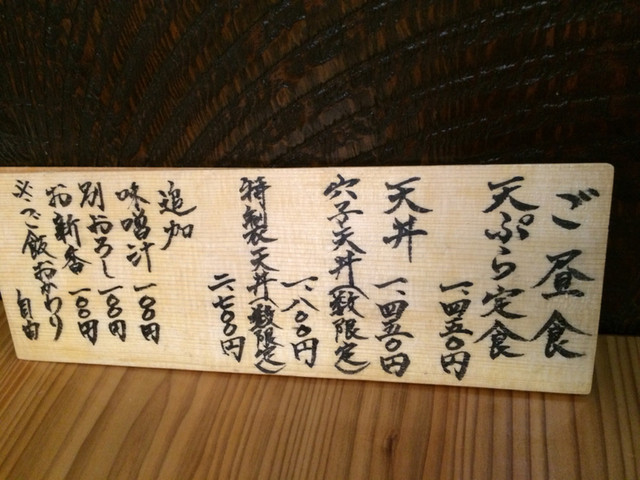 ご昼食
天ぷら定食
一、四五〇円
天丼
一、四五〇円
穴子天丼(数限定)
一、八〇〇円
特製天丼(数限定)
二、七〇〇円
追加
味噌汁 一〇〇円
別おろし 一〇〇円
お新香 一〇〇円
※ご飯おかわり自由